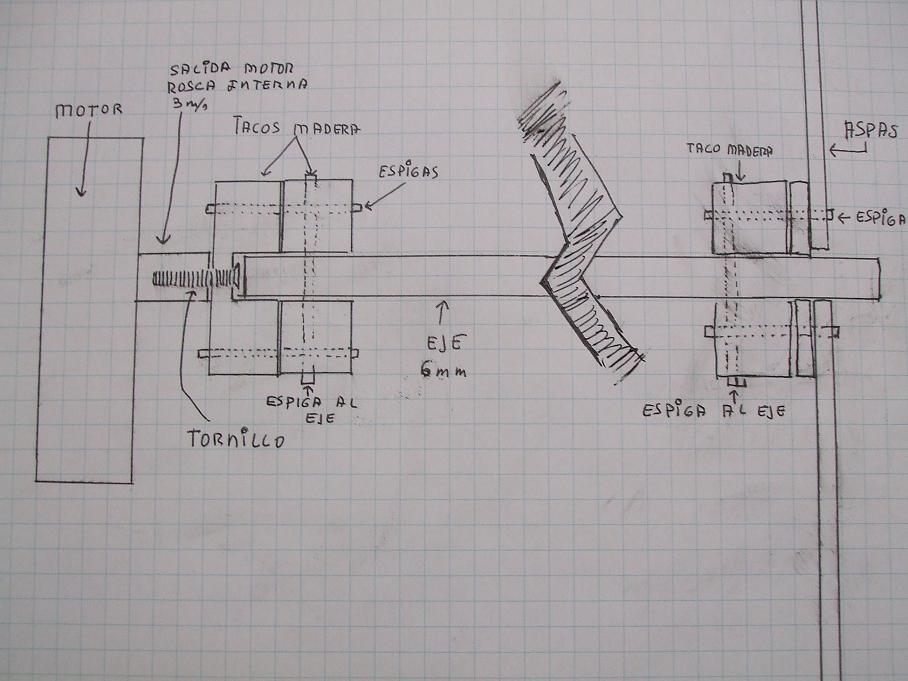 SALIDA MOTOR
ROSCA INTERNA
3 m/m
MOTOR
TACOS MADERA
ESPIGAS
TACO MADERA
ASPAS
ESPIGA
EJE
6mm
ESPIGA AL
EJE
ESPIGA AL EJE
TORNILLO